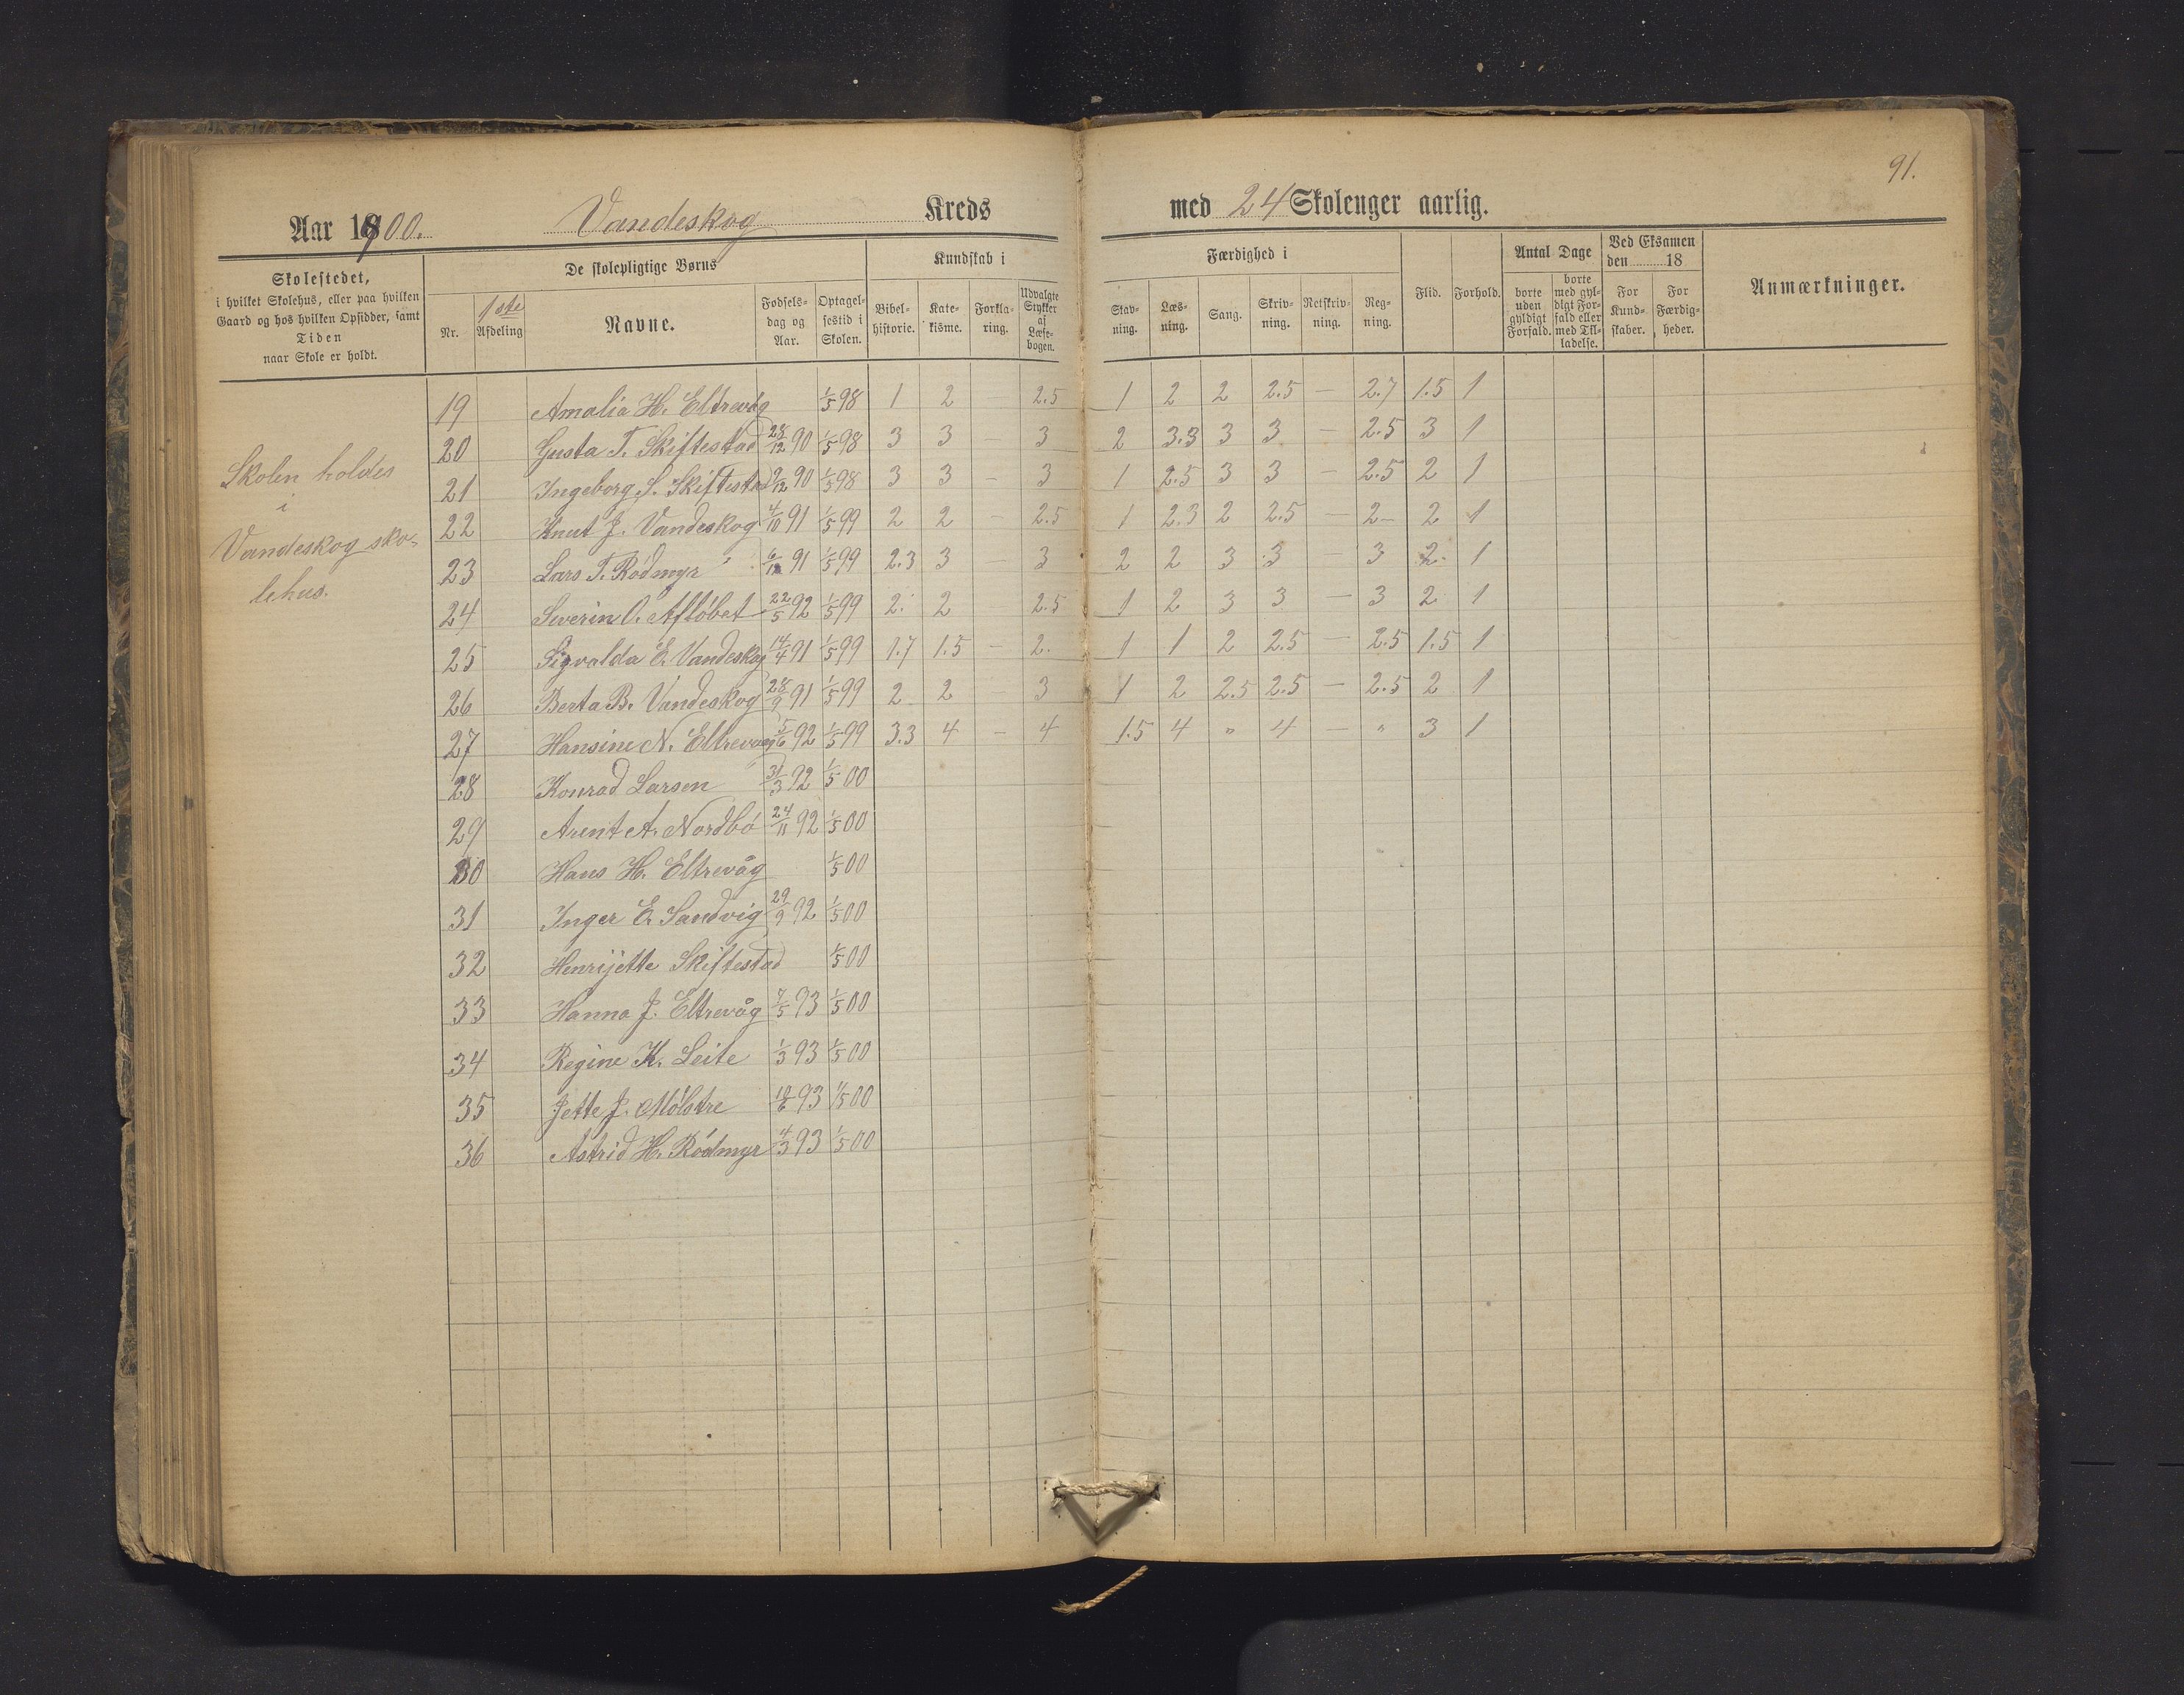 91.
Aar 1900. Vandeskog Kreds med 24 Skolenger aarlig.
Skolestedet,
i hvilket Skolehus, eller paa hvilken
Gaard og hos hvilken Opsidder, samt
Tiden
naar Skole er holdt.
De skolepligtige Børns
Nr.
1ste
Afdeling
Navne.
Fødsels-
dag og
Aar.
Optagel-
sestid i
Skolen.
Kundskab i
Bibel-
historie.
Kate-
kisme.
Forkla-
ring.
Udvalgte
Stykker
af
Læse-
bogen.
Færdighed i
Stav-
ning.
Læs-
ning.
Sang.
Skriv-
ning.
Retskriv-
ning.
Reg-
ning.
Flid.
Forhold.
Antal Dage
borte
uden
gyldigt
Forfald.
borte
med gyl-
digt For-
fald eller
med Til-
ladelse.
Ved Eksamen
den 18
For
Kund-
skaber.
For
Færdig-
heder.
Anmærkninger.
Skolen holdes
i
Vandeskog sko-
lehus.
19 Amalia H. Eltrevåg 1/5 98 1 2 2.5 1 2 2 2.5 — 2.7 1.5 1
20 Gusta T. Skiftestad 28/12 90 1/5 98 3 3 — 3 2 3.3 3 3 — 2.5 3 1
21 Ingeborg S. Skiftestad 9/12 90 1/5 98 3 3 — 3 1 2.5 3 3 — 2.5 2 1
22 Knut J. Vandeskog 4/10 91 1/5 99 2 2 — 2.5 1 2.3 2 2.5 — 2 2 1
23 Lars T. Rödmyr 91 1/5 99 2.3 3 3 2 2 3 3 3 2 1
24 Severin O. Aflöbet 22/5 92 1/5 99 2 2 — 2.5 1 2 3 3 — 3 2 1
25 Sigvalda E. Vandeskog 14/4 91 1/5 99 1.7 1.5 — 2. 1 1 2 2.5 — 2.5 1.5 1
26 Berta B. Vandeskog 28/9 91 1/5 99 2 2 3 1 2 2.5 2.5 — 2.5 2 1
27 Hansine N. Eltrevaag 5/6 92 1/5 99 3.3 4 — 4 1.5 4 " 4 — " 3 1
28 Konrad Larsen 31/3 92 1/5 00
29 Arent A. Nordbó 24/11 92 1/5 00
30 Hans H. Eltrevåg 1/5 00
31 Inger E. Sandvig 29/9 92 1/5 00
32 Henrijette Skiftestad 1/5 00
33 Hanna J. Eltrevåg 7/5 93 1/5 00
34 Regine K. Leite 1/3 93 1/5 00
35 Jette J. Mölstre 10/6 93 1/5 00
36 Astrid H. Ródmyr 4/3 93 1/5 00